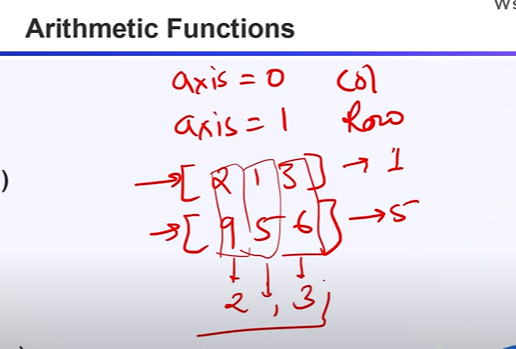 Ws
Arithmetic Functions
axis = 0 Col
axis = 1 Row
)
→[ 2 1 3 ] → 1
→[ 9 5 6 ] → 5
↓ ↓ ↓
2 , 3